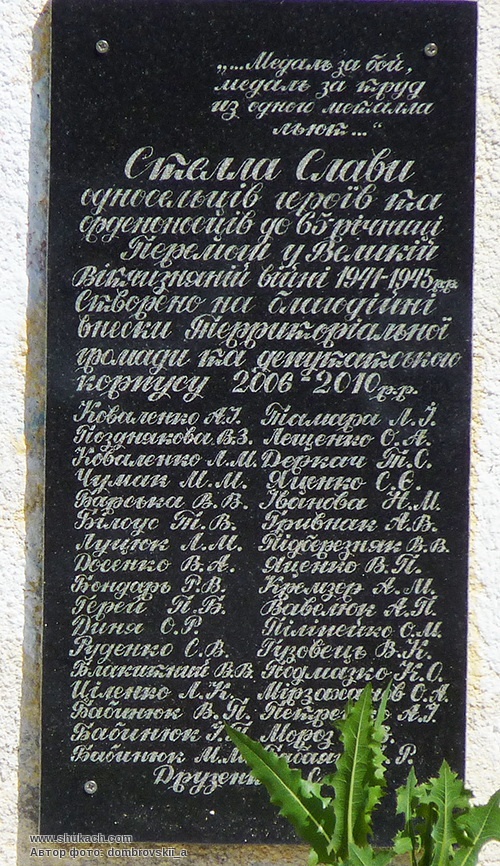 „...Медаль за бой,
медаль за труд
из одного металла
льют..."
Стелла Слави
односельців героїв та
орденоносців до 65 річниці
Перемоги у Великій
Вітчизняній війні 1941-1945 р.р.
Створено на благодійні
внески Територіальної
громади та депутатського
корпусу 2006-2010 р.р.
Коваленко А.І. Тамара Л.Ї.
Позднякова В.З. Лещенко С.А.
Коваленко Л.М. Деркач Т.С.
Чумак М.М. Яценко С.Є.
Барська В.В. Іванова Н.М.
Білоус Т.В. Гривнак А.В.
Луцюк Л.М. Підберезняк В.В.
Досенко В.А. Яценко В.П.
Бондарь Г.В. Кремзор А.М.
Герей П.В. Вавелюк А.П.
Диня О.Р. Пілінейко О.М.
Руденко С.В. Гузовець В.К.
Блакитний В.В. Подмазко К.О.
Ціленко Л.К. О.А.
Бабинюк В.П. А.І.
Бабинюк Г.П. Мороз
Бабинюк М.М. Р.
www.shukach.com
Автор фото: dombrovskii_a